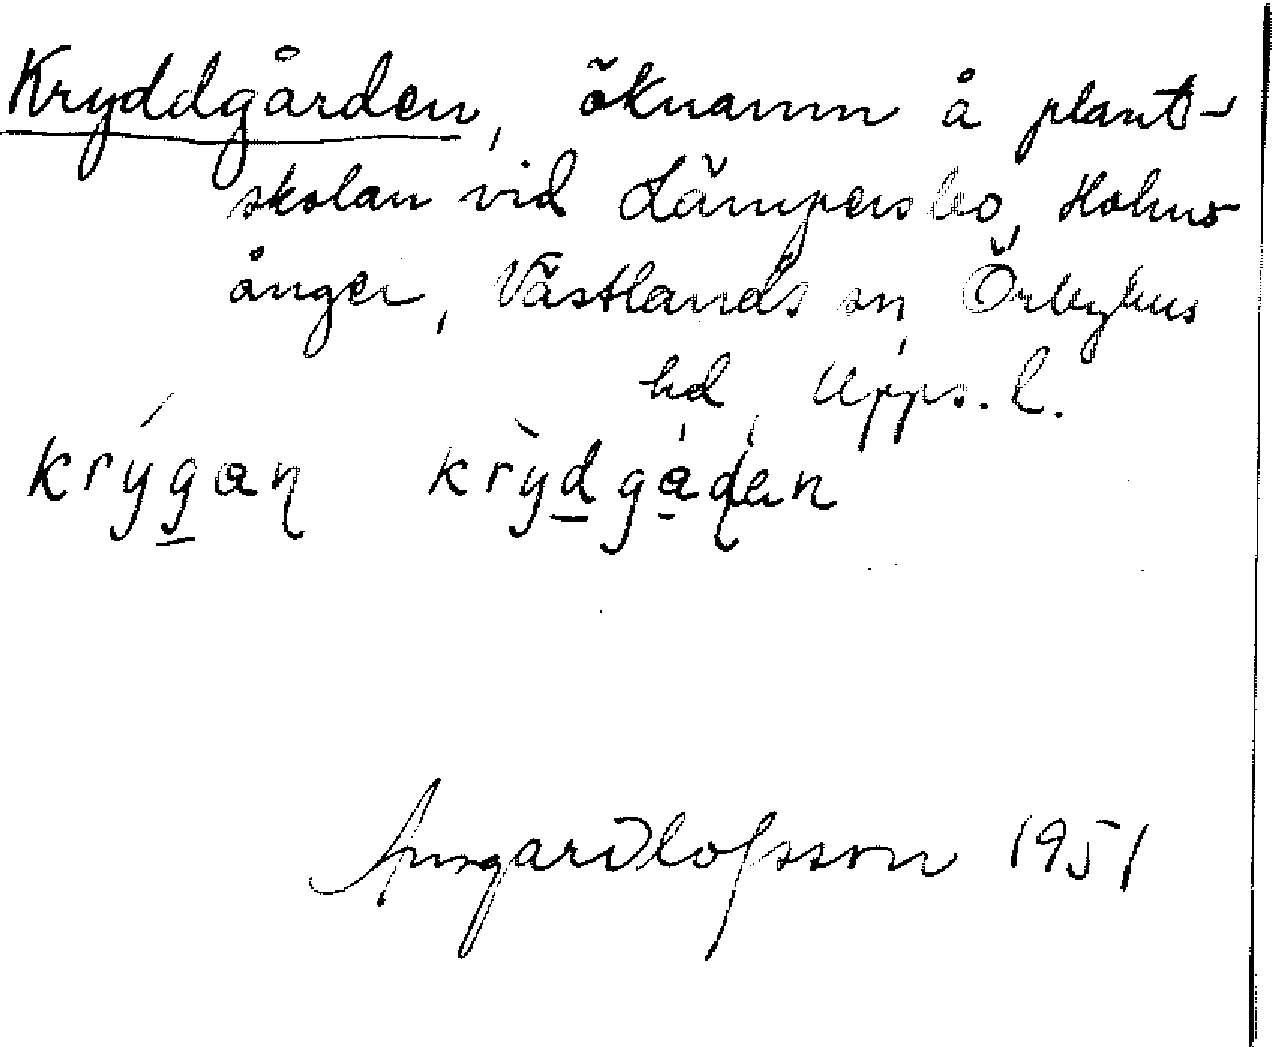 Kryddgården, öknamn å plant-
skolan vid Lämpersbo, Holms-
ånger, Västlands sn, Örbyhus
hd, Upps. l.
krýgaɳ krỳdgáɖen
Ansgar Olofsson 1951